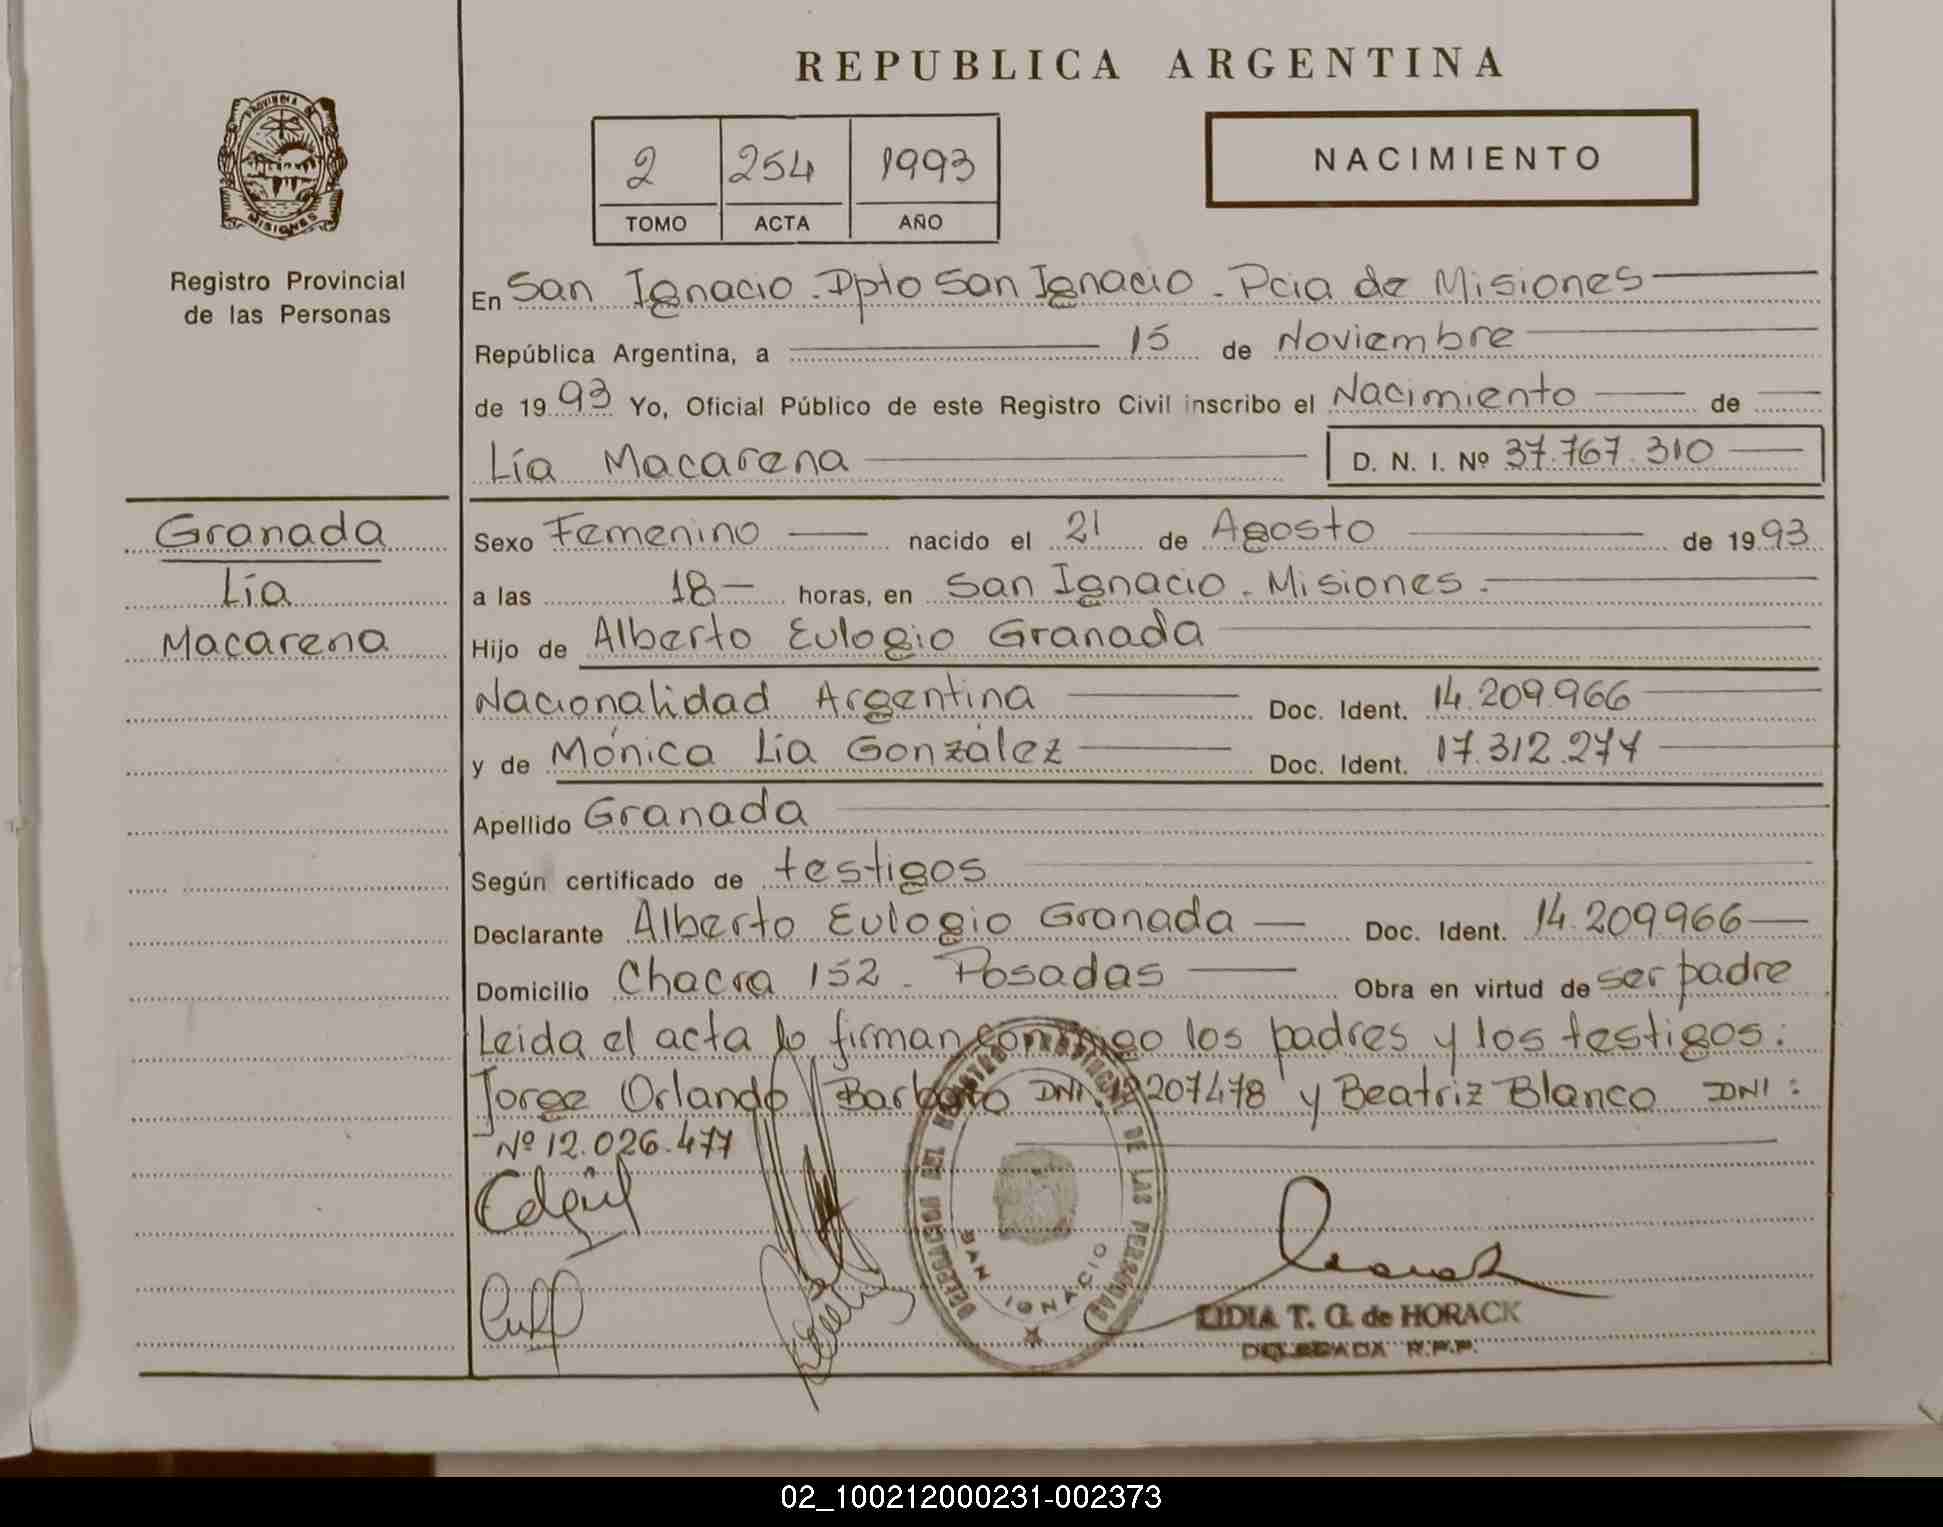 REPUBLICA ARGENTINA
PROVINCIA DE
MISIONES
Registro Provincial
de las Personas
2 254 1993
TOMO ACTA AÑO
NACIMIENTO
En San Ignacio. Dpto San Ignacio. Pcia de Misiones
República Argentina, a 15 de Noviembre
de 1993 Yo, Oficial Público de este Registro Civil inscribo el Nacimiento de
Lía Macarena D. N. I. Nº 37.767.310
Granada
Lía
Macarena
Sexo Femenino nacido el 21 de Agosto de 1993
a las 18 horas, en San Ignacio. Misiones.
Hijo de Alberto Eulogio Granada
Nacionalidad Argentina Doc. Ident. 14.209.966
y de Mónica Lía González Doc. Ident. 17.312.277
Apellido Granada
Según certificado de testigos
Declarante Alberto Eulogio Granada Doc. Ident. 14.209966
Domicilio Chacra 152. Posadas Obra en virtud de ser padre
Leida el acta lo firman conmigo los padres y los testigos:
Jorge Orlando DNI. 12207478 y Beatriz Blanco DNI:
Nº 12.026.477
DELEGACION DEL REGISTRO PROVINCIAL DE LAS PERSONAS
SAN IGNACIO
LIDIA T. G. de HORACK
DELEGADA R.P.P.
02_100212000231-002373